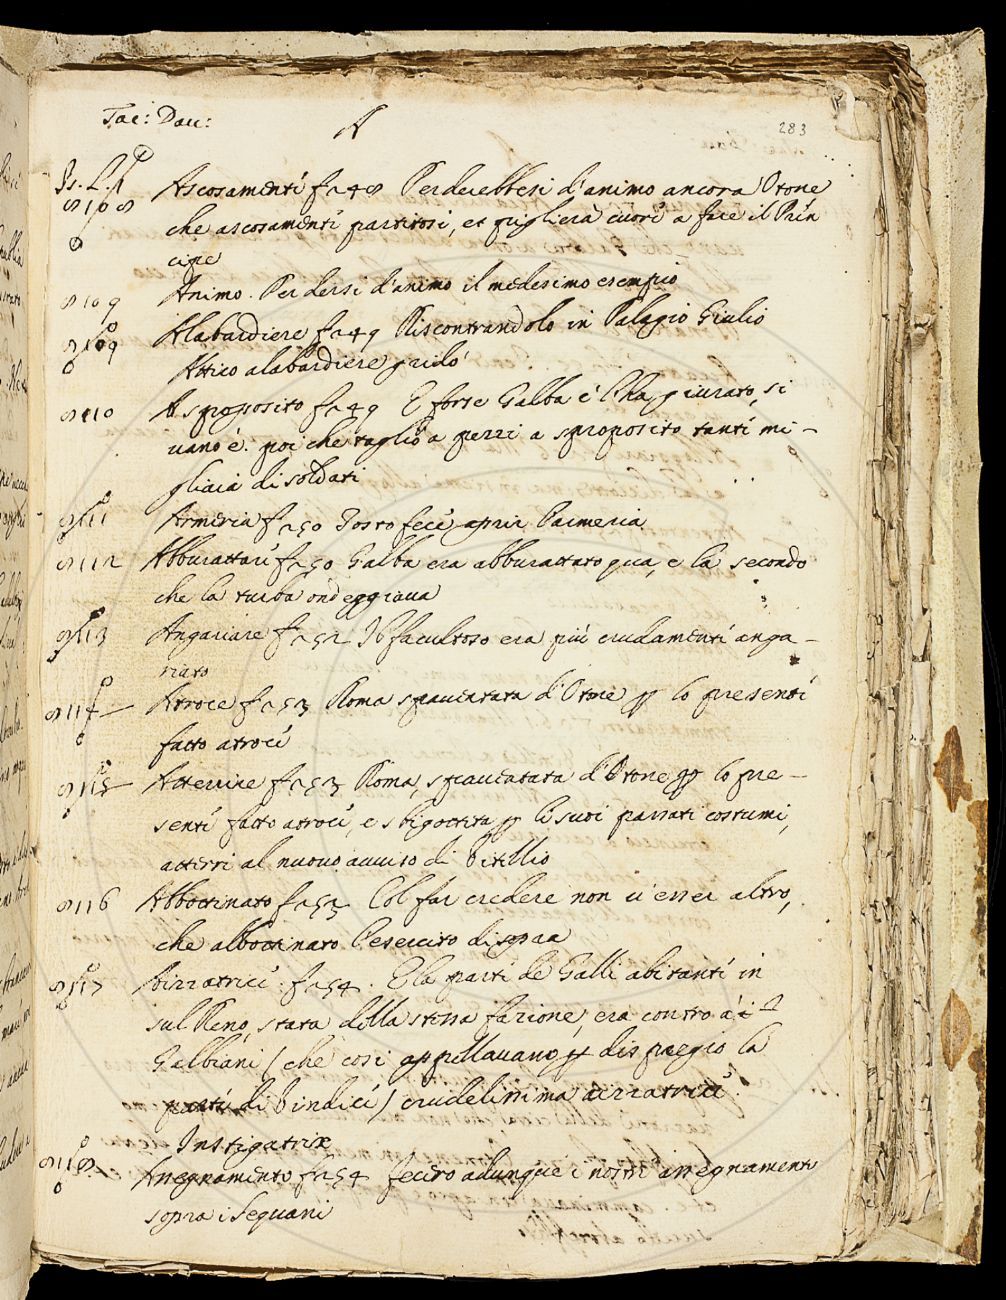 Tac: Dau:
A
283
Is. L. 1
8108 Ascosamenti f. 248 Perderebbesi d'animo ancora Otone
che ascosamenti partitosi, et piglieria cuori a fare il Prin
cipe
8109 Animo. Perdersi d'animo il medesimo esempio
8109 Alabardiere f. 249 Riscontrandolo in Palagio Giulio
Attico alabardiere gridò
8110 A sproposito f. 249 E forse Galba è l'ha giurato, si
uano è. poi che tagliò a pezzi a sproposito tanti mi-
gliaia di soldati
8111 Armeria f. 250 Tosto fece aprir l'armeria
8112 Abburattari f. 250 Galba era abburattato qua, e là secondo
che la turba ondeggiaua
8113 Angariare f. 252 Il facultoso era più crudamenti anga-
riato
8114 Atroce f. 253 Roma spauentata d'Otone p lo presenti
fatto atroci
8115 Atterrire f. 253 Roma, spauentata d'Otone p lo pre-
senti fatto atroci, e sbigottita p li suoi passati costumi,
atterrì al nuouo auuiso di Vitellio
8116 Abbottinato f. 253 Col far credere non u'esser altro,
che abbottinato l'esercito di sopra
8117 Aizzatrici f. 254. E la parti de Galli abitanti in
sul Reno, stata della stessa fazione, era contro a' i
Galbiani / che così appellauano p dispregio la
parti di Vindici / crudelissima aizzatrici
Instigatrix
8118. Assegnamento f. 254 Fecero adunque i nostri assegnamento
sopra i Sequani